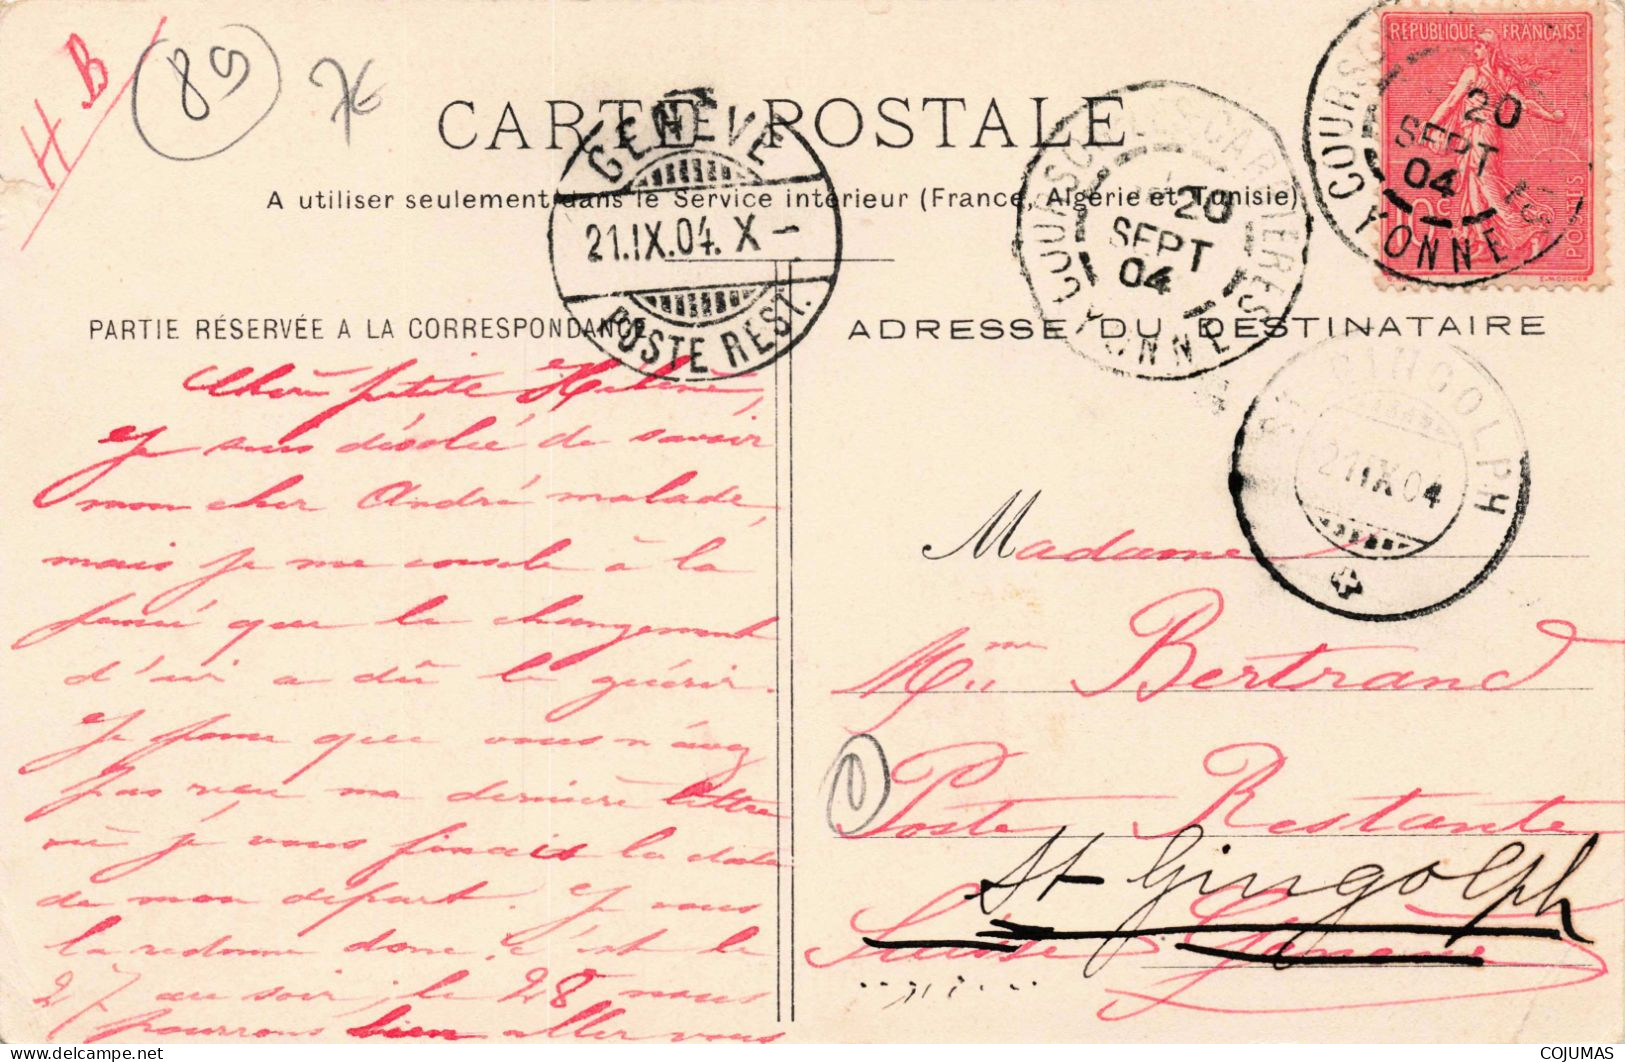 H B
89
7€
CARTE POSTALE
A utiliser seulement dans le Service intérieur (France, Algérie et Tunisie)
REPUBLIQUE FRANÇAISE
10c
POSTES
COURSON-LES-CARRIERES
20
SEPT
04
YONNE
COURSON
20
SEPT
04
YONNE
GENÈVE
21.IX.04. X –
POSTE REST.
ST GINGOLPH
21 IX 04
PARTIE RÉSERVÉE A LA CORRESPONDANCE
Chère petite Hélène,
Je suis désolée de savoir
mon cher André malade,
mais je me console à la
pensée que le changement
d'air a dû le guérir.
Je pense que vous n'avez
pas reçu ma dernière lettre
où je vous fixais la date
de mon départ. Je vous
la redonne donc, c'est le
27 au soir, le 28 nous
pourrons bien aller vous
ADRESSE DU DESTINATAIRE
Madame
Mme Bertrand
Poste Restante
St Gingolph
Suisse Genève
COJUMAS